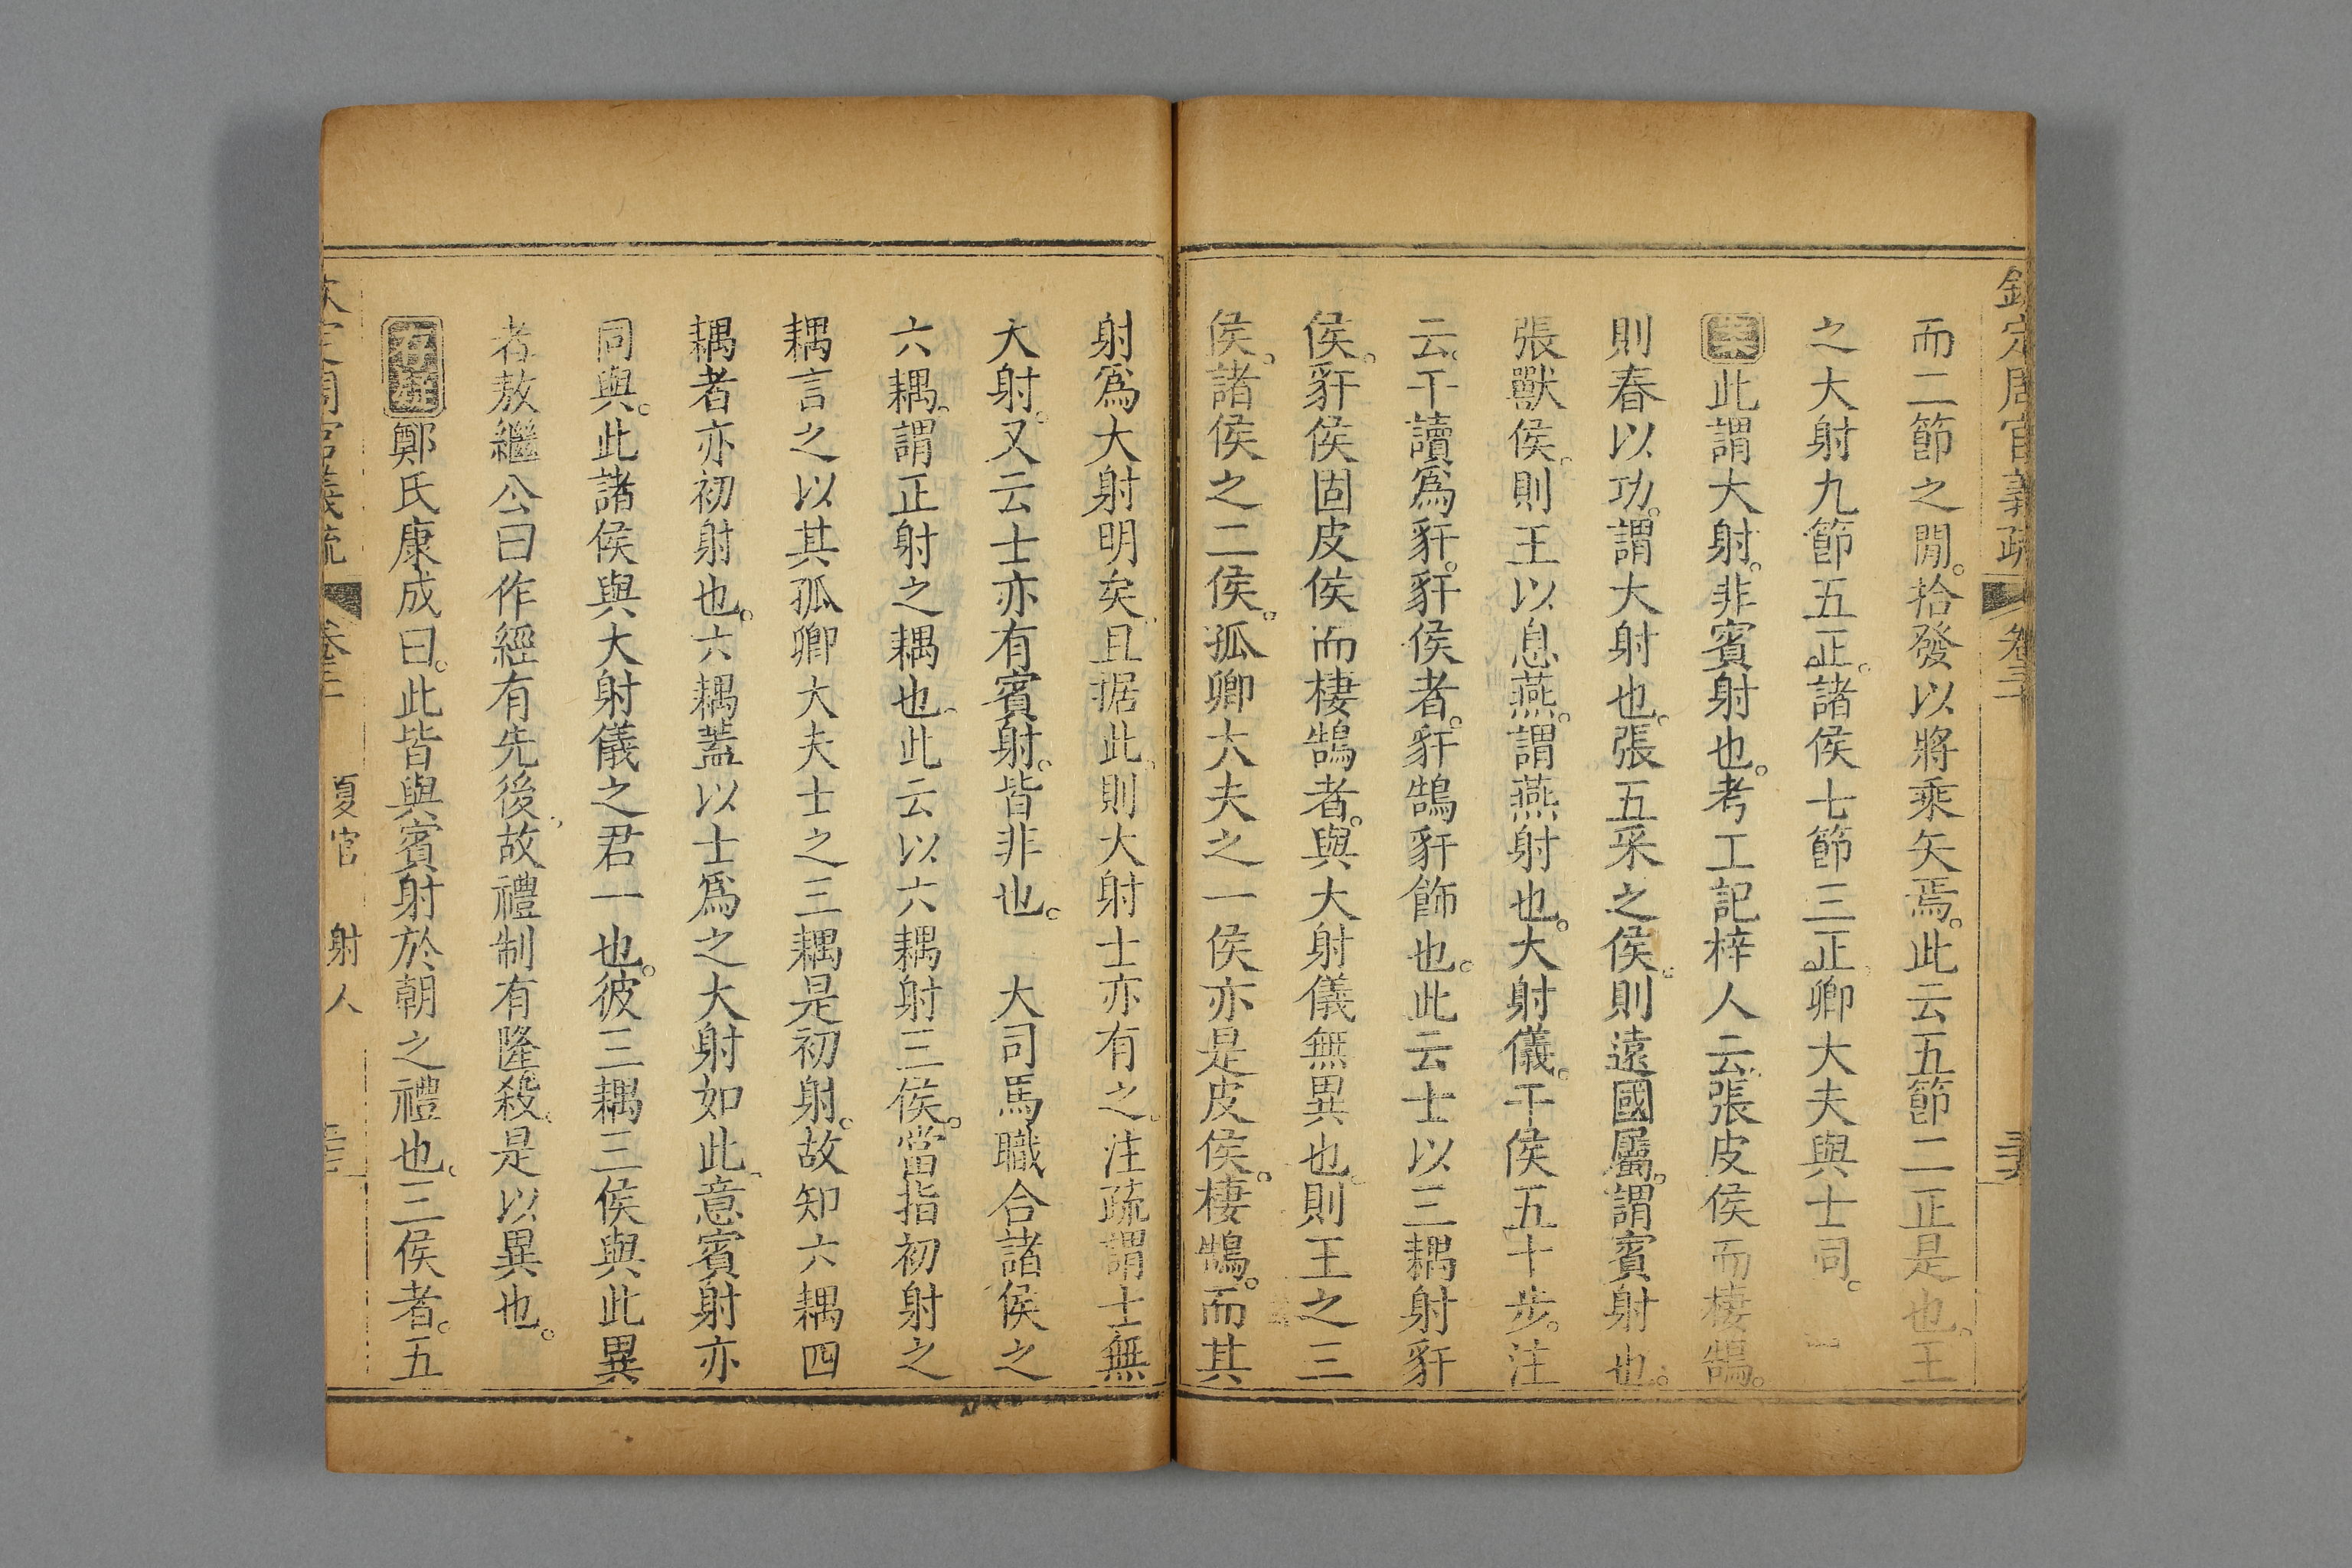 欽定周官義疏 卷三十
而二節之閒。拾發以將乘矢焉。此云五節二正是也。王
之大射九節五正。諸侯七節三正。卿大夫與士同。
案此謂大射。非賓射也。考工記梓人云。張皮侯而棲鵠。
則春以功。謂大射也。張五采之侯。則遠國屬。謂賓射也。
張獸侯。則王以息燕。謂燕射也。大射儀。干侯五十步。注
云。干讀爲豻。豻侯者。豻鵠豻飾也。此云士以三耦射豻
侯。豻侯固皮侯而棲鵠者。與大射儀無異也。則王之三
侯。諸侯之二侯。孤卿大夫之一侯亦是皮侯。棲鵠。而其
射爲大射明矣。且据此。則大射士亦有之。注疏謂士無
大射。又云士亦有賓射。皆非也。 大司馬職合諸侯之
六耦。謂正射之耦也。此云以六耦射三侯。當指初射之
耦言之以其孤卿大夫士之三耦是初射。故知六耦四
耦者亦初射也。六耦蓋以士爲之大射如此。意賓射亦
同與。此諸侯與大射儀之君一也。彼三耦三侯與此異
者敖繼公曰作經有先後。故禮制有隆殺。是以異也。
存疑鄭氏康成曰。此皆與賓射於朝之禮也。三侯者。五
欽定周官義疏 卷三十 夏官 射人